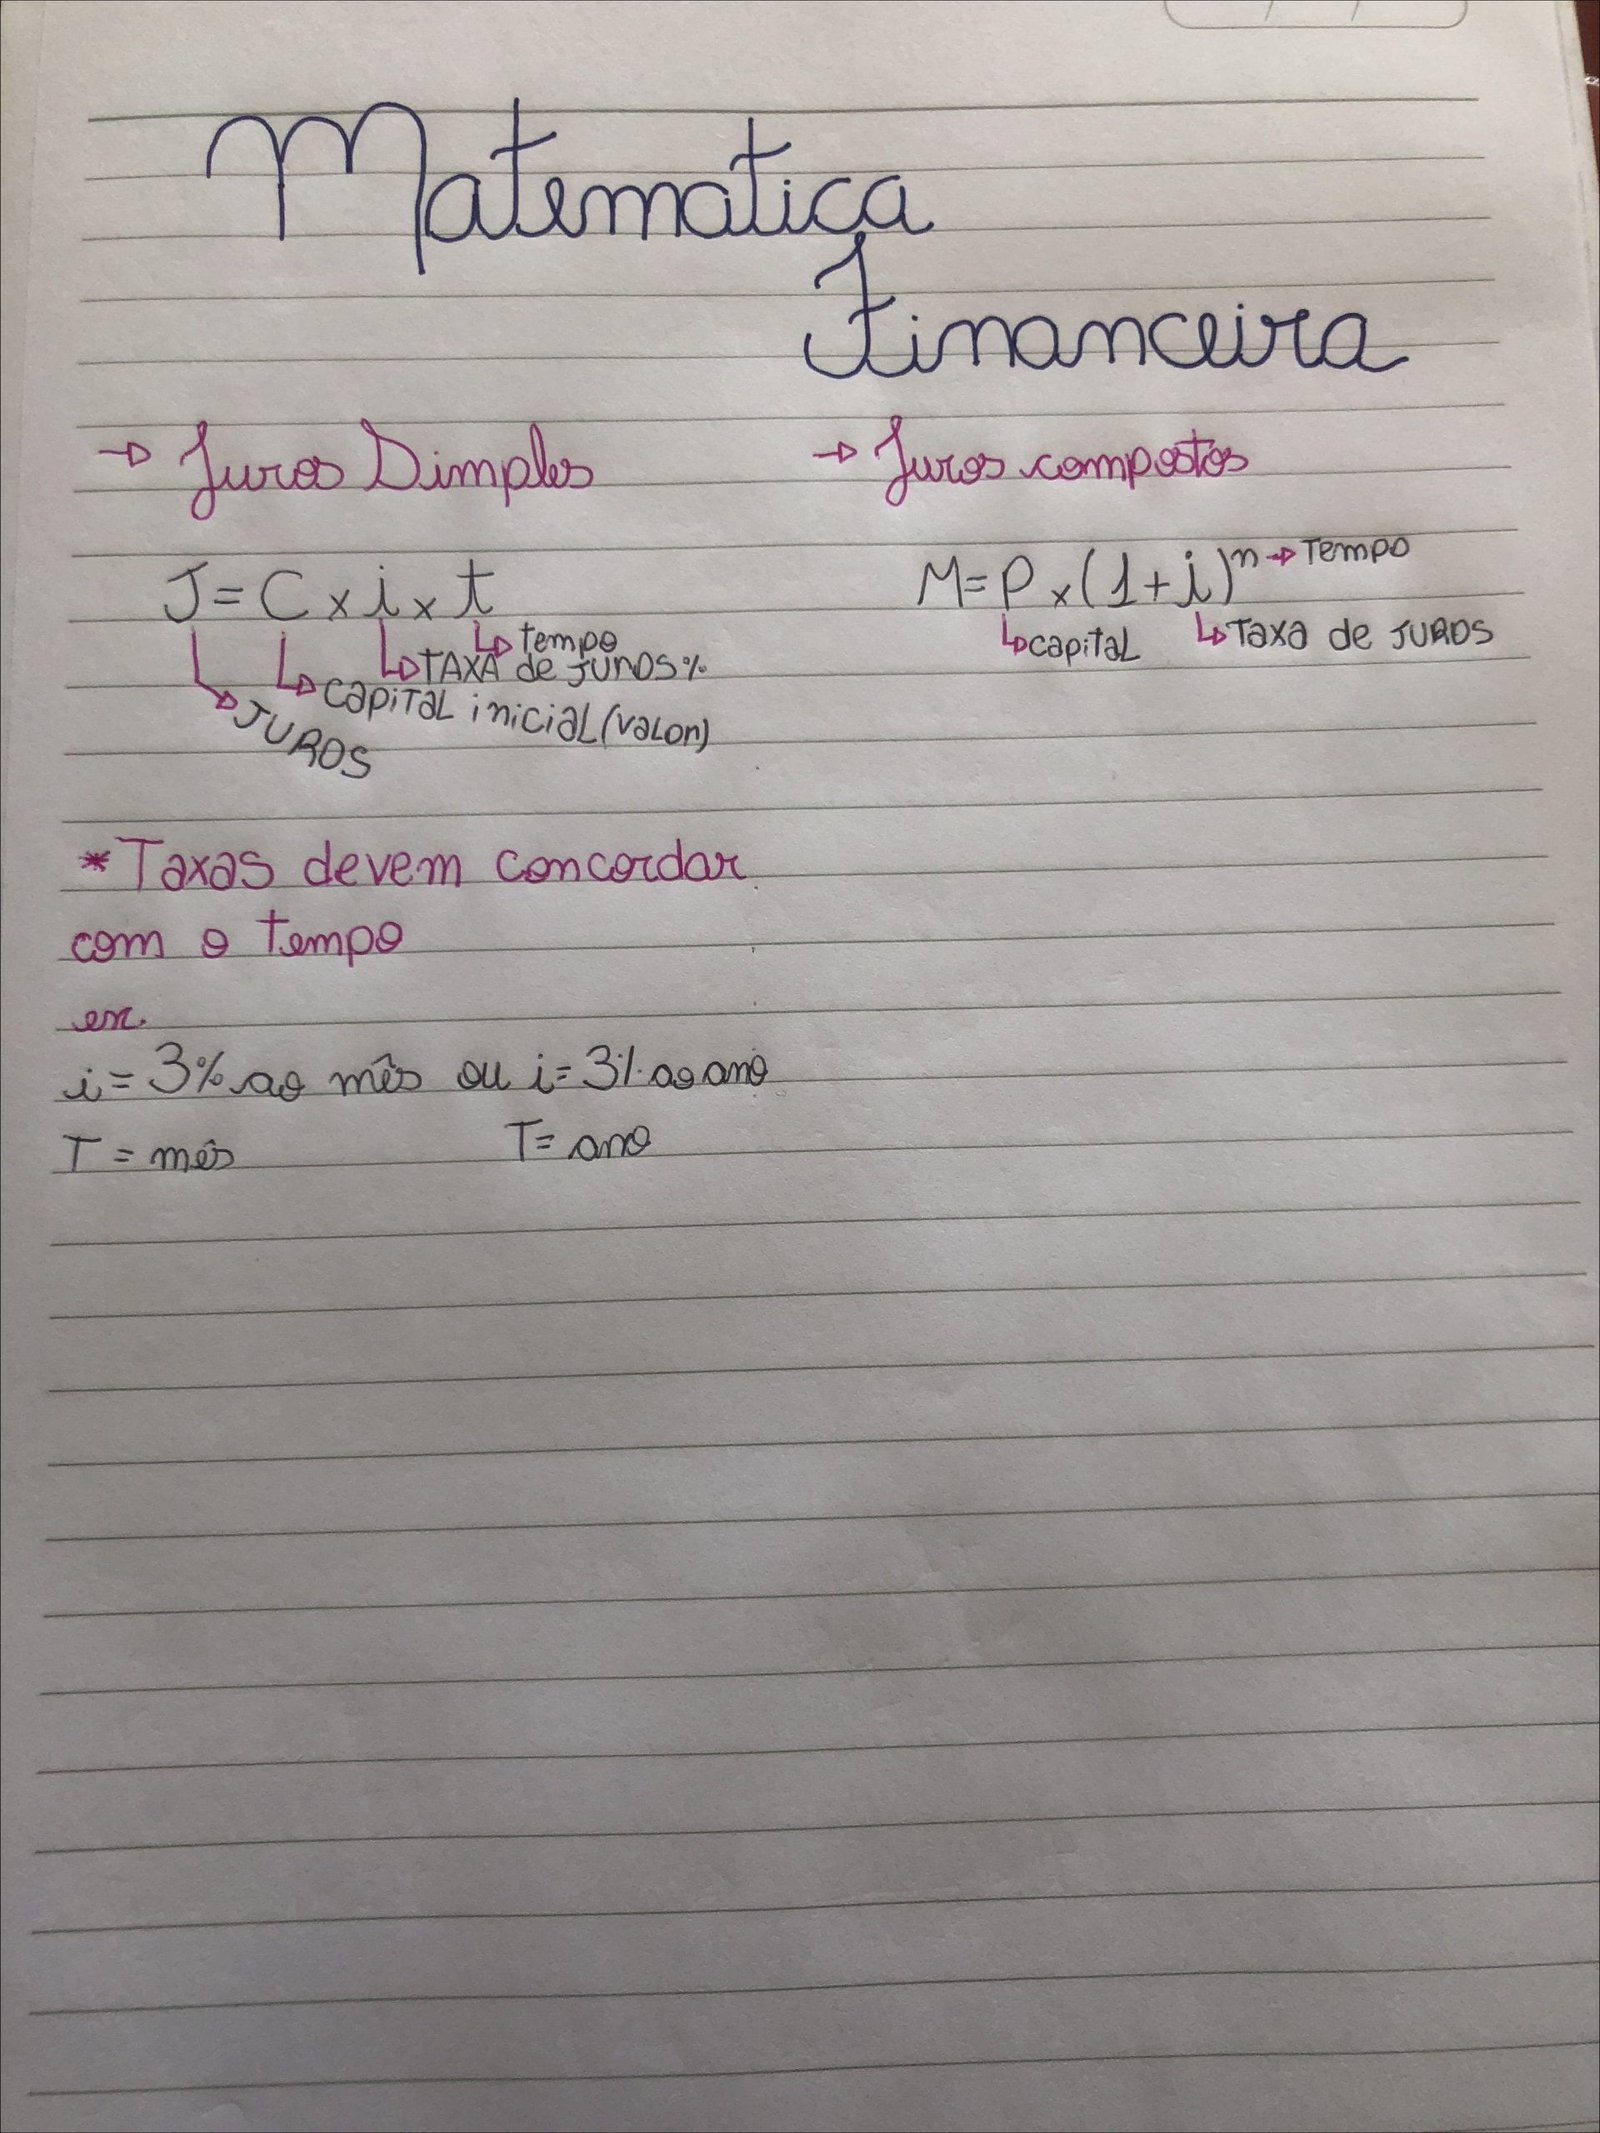 Matematica
Financeira
→ Juros Simples
→ Juros compostos
J = C x i x t
tempo
TAXA de JUROS %
capital inicial (valor)
JUROS
M = P x (1 + i)ⁿ → Tempo
capital
Taxa de JUROS
* Taxas devem concordar
com o tempo
ex.
i = 3% ao mês ou i = 3% ao ano
T = mês T = ano